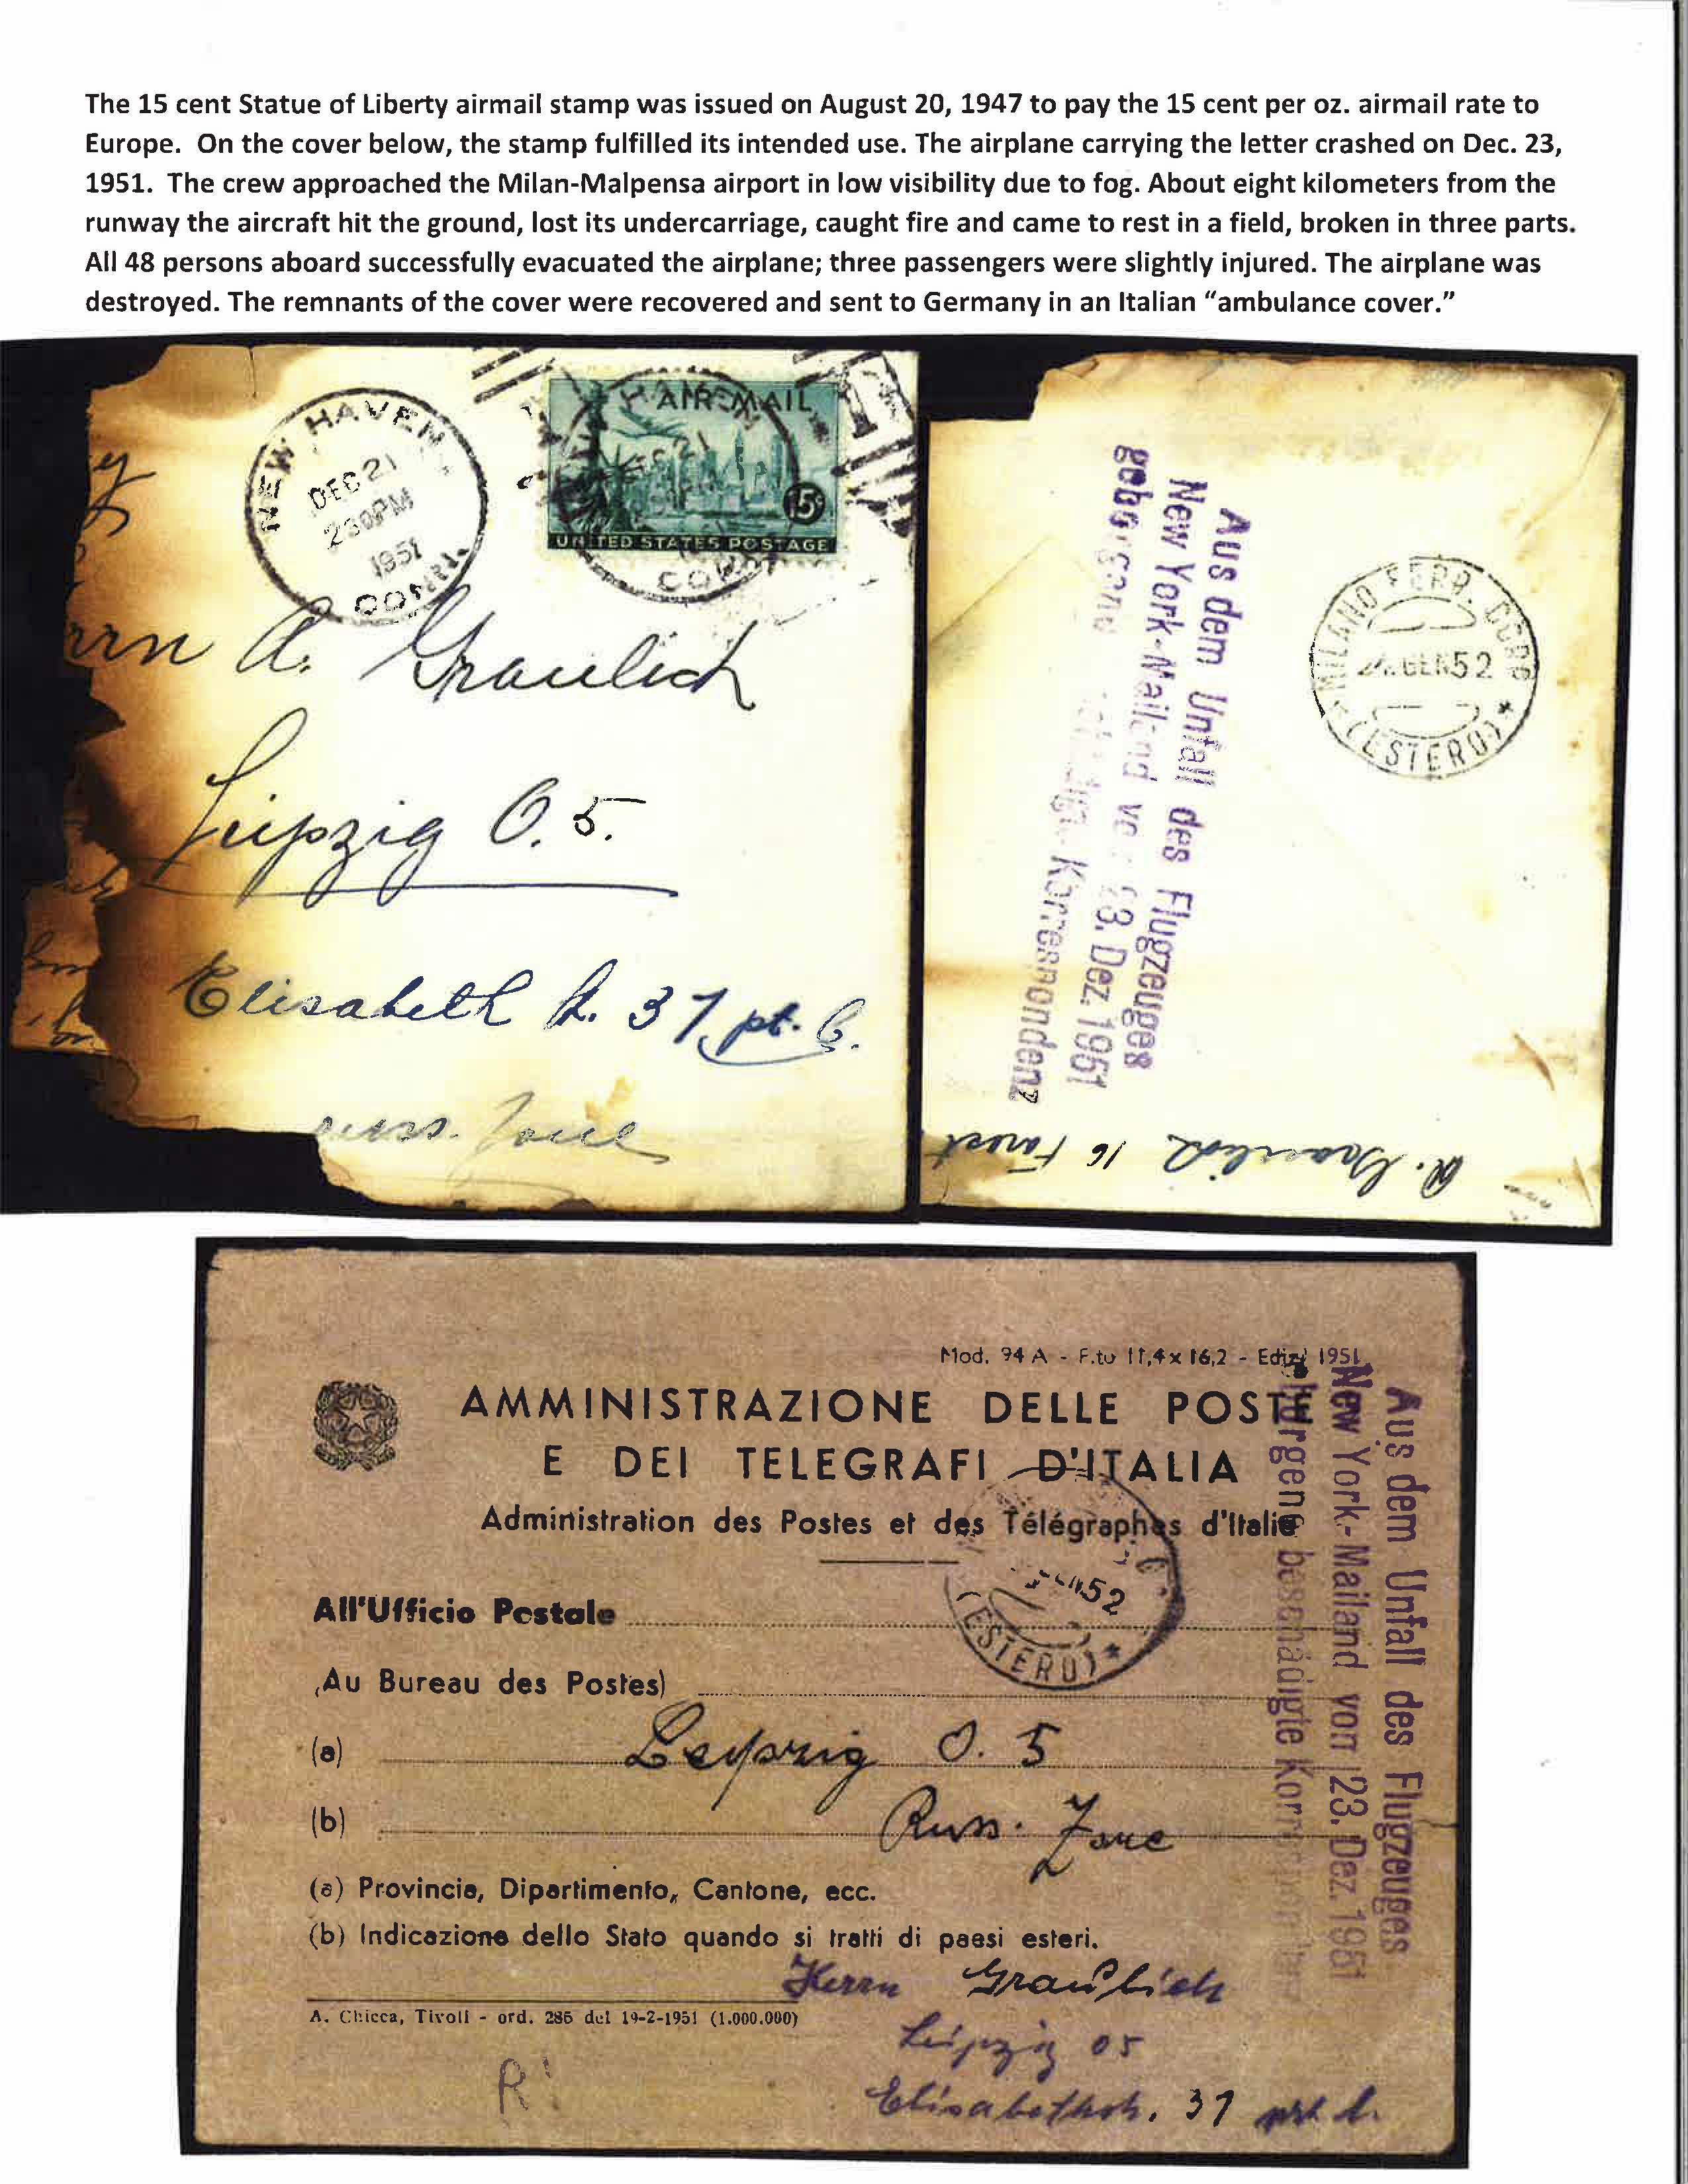 The 15 cent Statue of Liberty airmail stamp was issued on August 20, 1947 to pay the 15 cent per oz. airmail rate to
Europe. On the cover below, the stamp fulfilled its intended use. The airplane carrying the letter crashed on Dec. 23,
1951. The crew approached the Milan-Malpensa airport in low visibility due to fog. About eight kilometers from the
runway the aircraft hit the ground, lost its undercarriage, caught fire and came to rest in a field, broken in three parts.
All 48 persons aboard successfully evacuated the airplane; three passengers were slightly injured. The airplane was
destroyed. The remnants of the cover were recovered and sent to Germany in an Italian “ambulance cover.”
NEW HAVEN
DEC 21
230PM
1951
CONN.
AIR MAIL
15¢
UNITED STATES POSTAGE
rrn A. Graulich
Leipzig O. 5.
Elisabeth 37 pt. 
russ. Zone
Aus dem Unfall des Flugzeuges
New York-Mailand von 23. Dez. 1951
Korrespondenz
MILANO FERR. CORR
GEN 52
(ESTERO)
A. Graulich 16 Forest
Mod. 94 A - F.to 11,4 x 16,2 - Ediz. 1951
AMMINISTRAZIONE DELLE POSTE
E DEI TELEGRAFI D'ITALIA
Administration des Postes et des Télégraphes d'Italie
52
(ESTERO)
All'Ufficio Postale
Au Bureau des Postes)
(a) Leipzig O. 5
(b) Russ. Zone
(a) Provincia, Dipartimento, Cantone, ecc.
(b) Indicazione dello Stato quando si tratti di paesi esteri.
A. Chicca, Tivoli - ord. 286 del 19-2-1951 (1.000.000)
Herrn Graulich
Leipzig O5
Elisabethstr. 37
R
Aus dem Unfall des Flugzeuges
New York-Mailand von 23. Dez. 1951
beschädigte